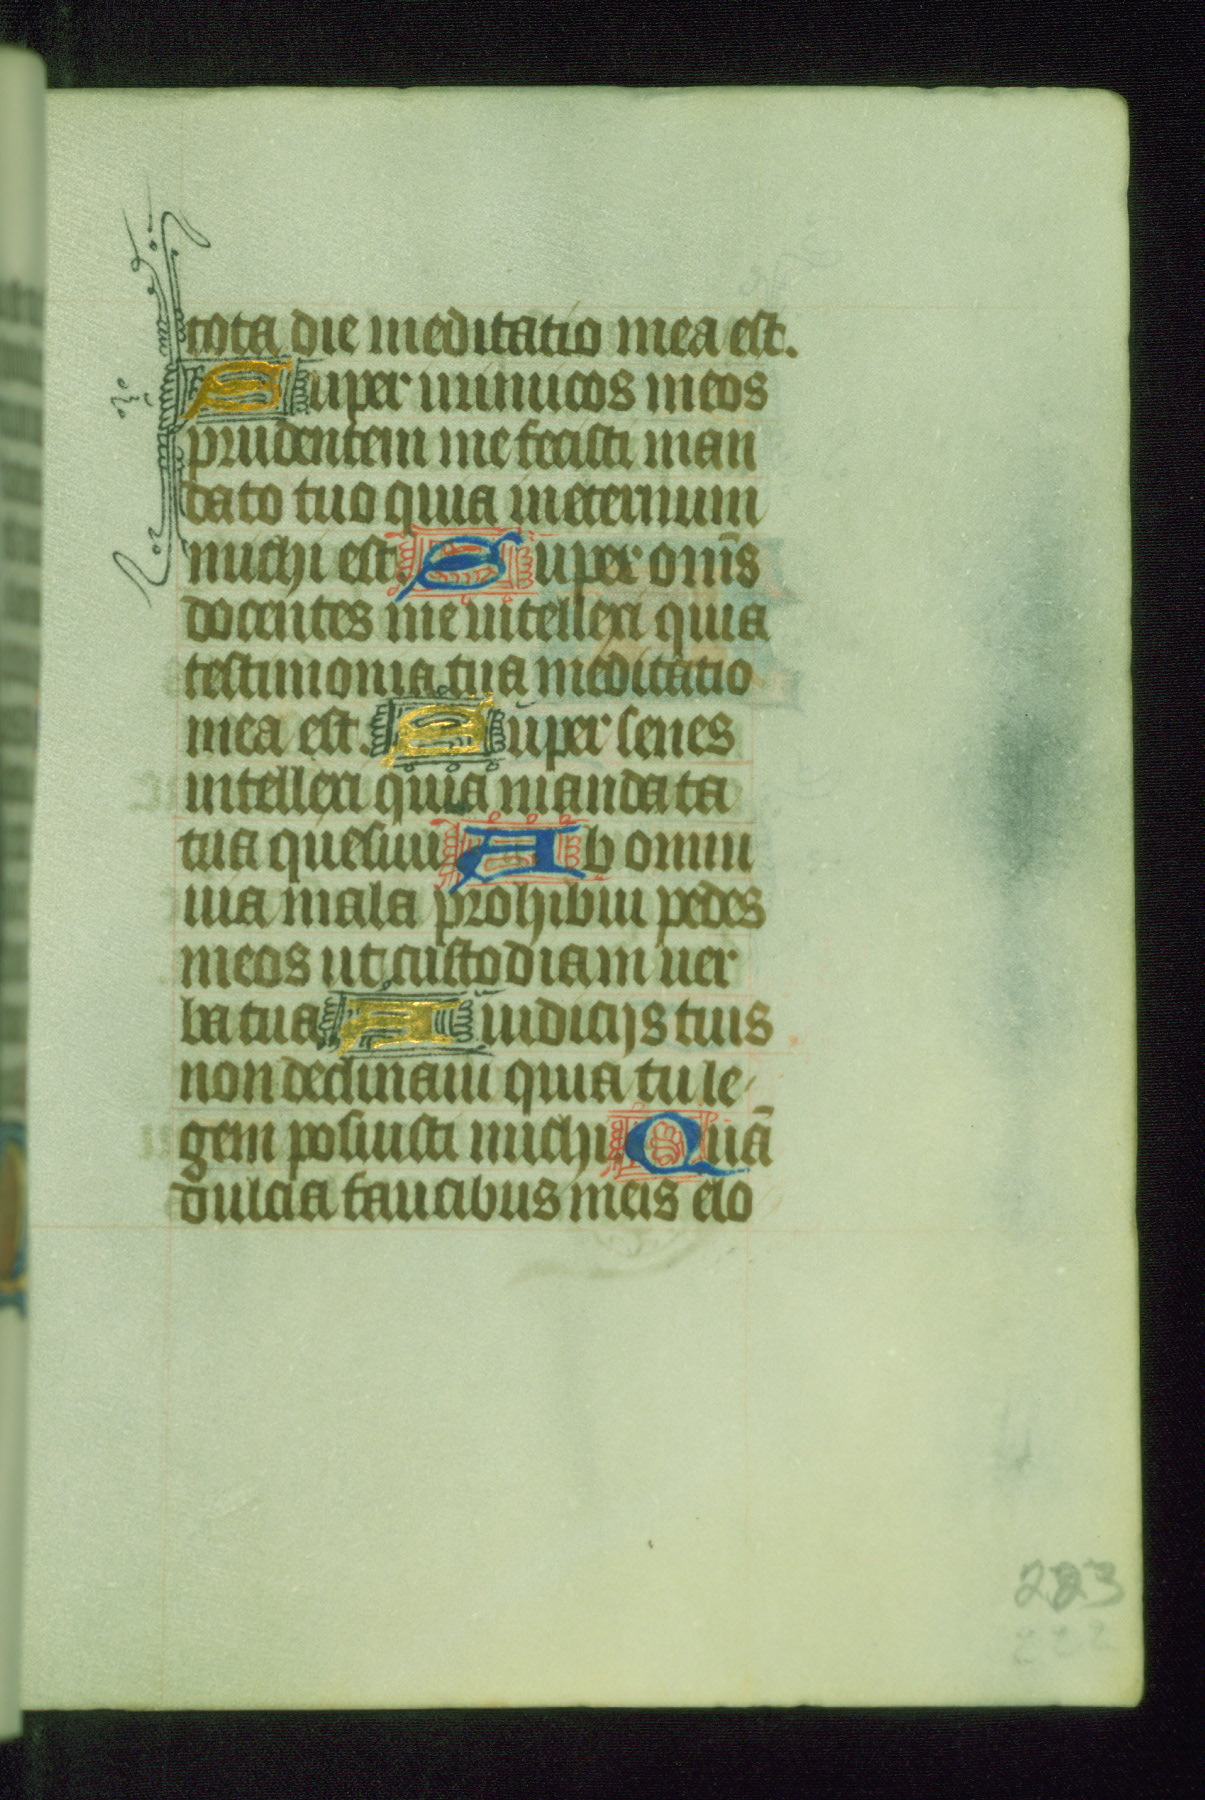 tota die meditatio mea est.
Super inimicos meos
prudentem me fecisti man
dato tuo quia ineternum
michi est. Super om̄s
docentes me intellexi quia
testimonia tua meditatio
mea est. Super senes
intellexi quia mandata
tua quesiui. Ab omni
uia mala prohibui pedes
meos ut custodiam uer
ba tua. A iudicijs tuis
non declinaui quia tu le
gem posuisti michi. Quā
dulcia faucibus meis elo
223